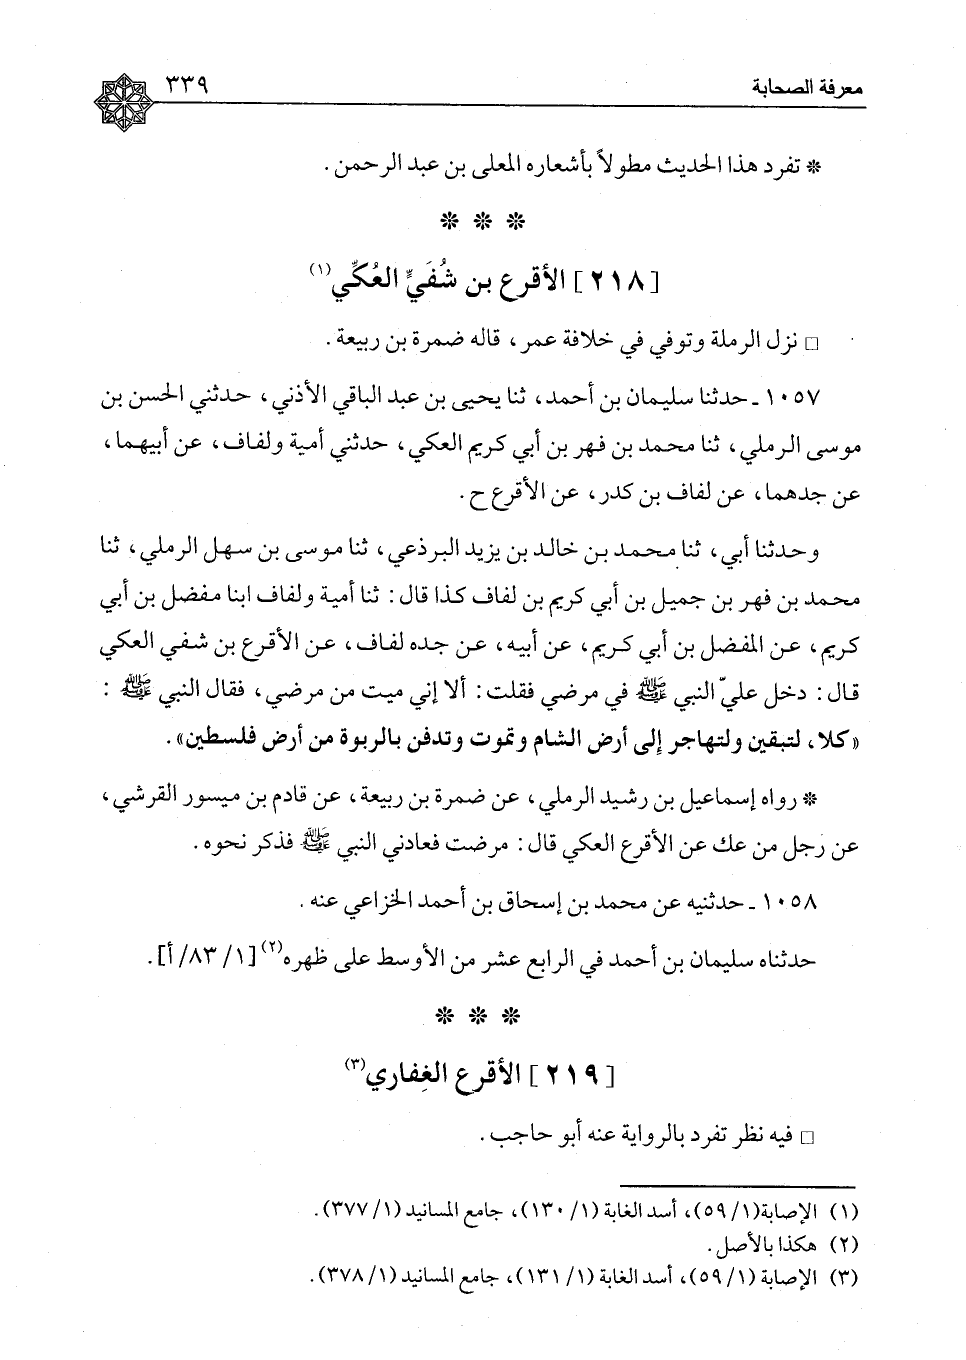 معرفة الصحابة ٣٣٩
* تفرد هذا الحديث مطولاً بأشعاره المعلى بن عبد الرحمن .
* * *
[٢١٨] الأقرع بن شُفَيٍّ العُكِّي(١)
□ نزل الرملة وتوفي في خلافة عمر، قاله ضمرة بن ربيعة .
١٠٥٧ ـ حدثنا سليمان بن أحمد، ثنا يحيى بن عبد الباقي الأذني، حدثني الحسن بن
موسى الرملي، ثنا محمد بن فهر بن أبي كريم العكي، حدثني أمية ولفاف، عن أبيهما،
عن جدهما، عن لفاف بن كدر، عن الأقرع ح .
وحدثنا أبي، ثنا محمد بن خالد بن يزيد البرذعي، ثنا موسى بن سهل الرملي، ثنا
محمد بن فهر بن جميل بن أبي كريم بن لفاف كذا قال : ثنا أمية ولفاف ابنا مفضل بن أبي
كريم، عن المفضل بن أبي كريم، عن أبيه، عن جده لفاف، عن الأقرع بن شفي العكي
قال : دخل عليّ النبي ﷺ في مرضي فقلت : ألا إني ميت من مرضي، فقال النبي ﷺ :
«كلا، لتبقين ولتهاجر إلى أرض الشام وتموت وتدفن بالربوة من أرض فلسطين» .
* رواه إسماعيل بن رشيد الرملي، عن ضمرة بن ربيعة، عن قادم بن ميسور القرشي،
عن رجل من عك عن الأقرع العكي قال : مرضت فعادني النبي ﷺ فذكر نحوه .
١٠٥٨ ـ حدثنيه عن محمد بن إسحاق بن أحمد الخزاعي عنه .
حدثناه سليمان بن أحمد في الرابع عشر من الأوسط على ظهره(٢) [١/ ٨٣/ أ] .
* * *
[٢١٩] الأقرع الغِفاري(٣)
□ فيه نظر تفرد بالرواية عنه أبو حاجب .
(١) الإصابة(٥٩/١)، أسد الغابة (١٣٠/١)، جامع المسانيد (٣٧٧/١) .
(٢) هكذا بالأصل .
(٣) الإصابة (٥٩/١)، أسد الغابة (١٣١/١)، جامع المسانيد (٣٧٨/١) .